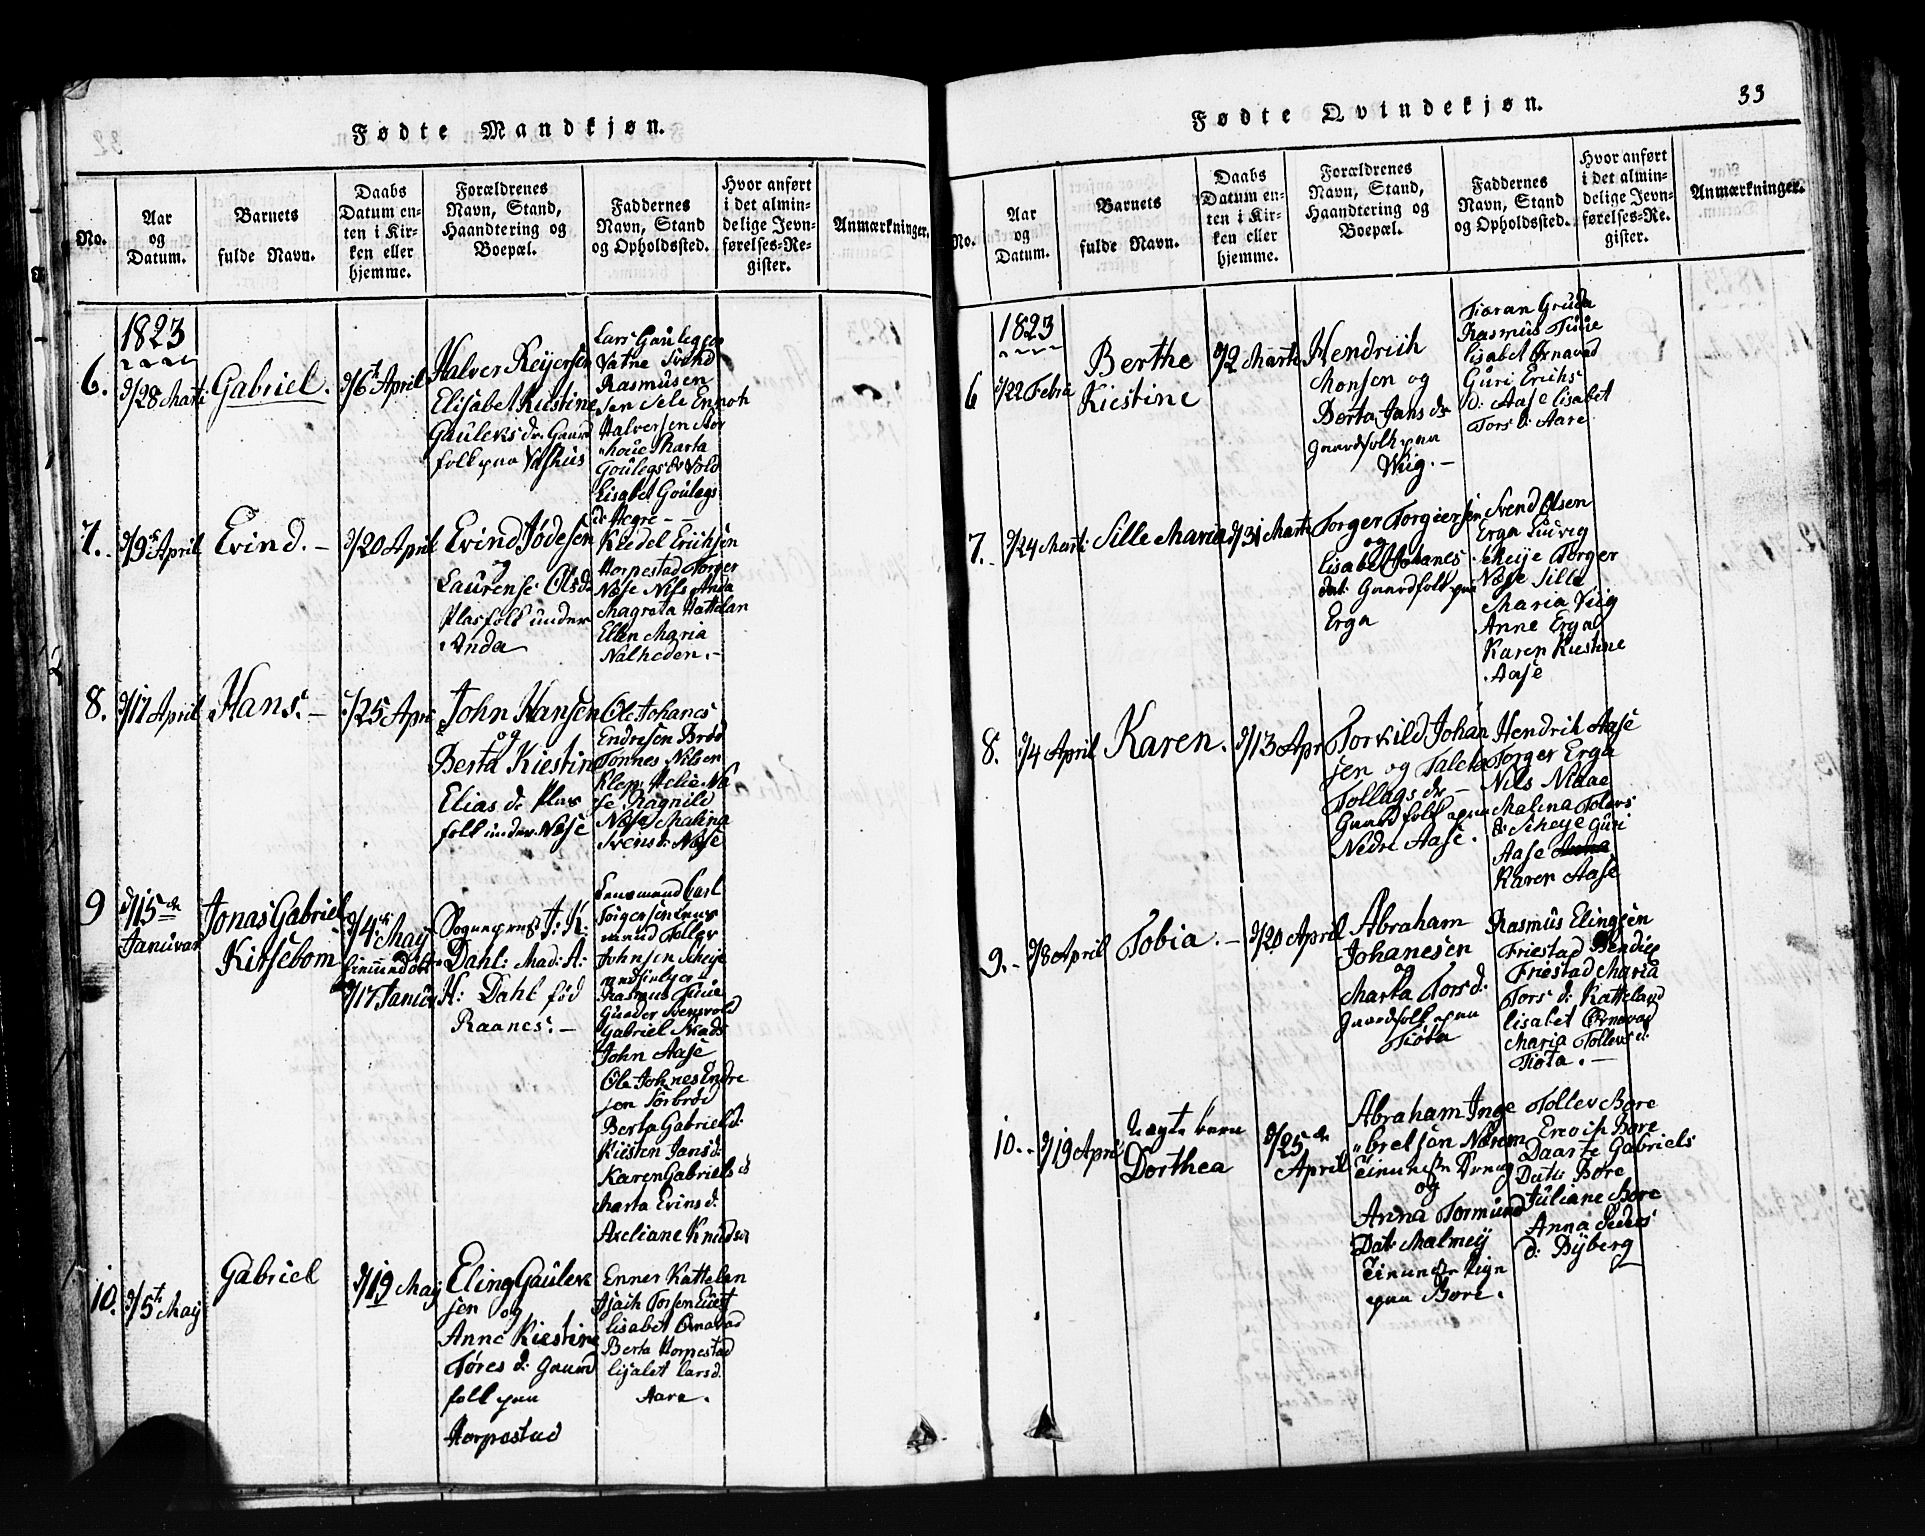 Fødte Mandkjøn.
No.
Aar
og
Datum.
Barnets
fulde Navn.
Daabs
Datum en-
ten i Kir-
ken eller
hjemme.
Forældrenes
Navn, Stand,
Haandtering og
Boepæl.
Faddernes
Navn, Stand
og Opholdssted.
Hvor anført
i det almin-
delige Jevn-
førelses-Re-
gister.
Anmærkninger.
1823
6.
d/28 Marti
Gabriel.
d/6t April
Halver Reijersen
Elisabet Kiestine
Gauleks dr. Gaard
folk paa
Lars Gaulegsen
Vatne Svend
Rasmusen
Sele Ennoh
Halversen
Marta
Goulegs dr Vold
Lisabet Goulegs
dr Hegre
7.
d/9de April
Evind. –
d/20 April
Evind Jödesen
og
Laurense Olsdr
Plasfolk under
Anda
Kiedel Erichsen
Horpestad Torger
Næse Nils Anda
Magreta Hattelan
Ellen Maria
Nalheden. –
8.
d/17 April
Hans. –
d/25 Apr
John Hansen
og
Berta Kiestine
Elias dr Plas
folk under Næse
Ole Johanes
Endresen Bröd
Tönnes Nilsen
Klep Helie Næ
se Ragnild
Næse Malina
Svens dr Næse
9
d/15de
Januvar
Jonas Gabriel
Kirsebom
d/4de Maij
d/17 Januv
Sogneprest J: K:
Dahl: Mad: A:
H: Dahl föd
Raanes. –
Carl
Torgersen
Tollev
Johnsen Scheije
Rasmus Tuue
Gunder
Gabriel
John Aase
Ole Johnes Endre
sen Sörbröd
Berta Gabrielsd.
Kiesten Jansd:
Karen Gabriels d
Marta Evinsd:
Axeliane Knudsd
10.
d/5t Maij
Gabriel
d/19 Maij
Eling Gaulek
sen og
Anne Kiestine
Töres d: Gaard
folk paa
Horpestad
Enner Kattelan
Torsen
Lisabet Ornavad
Berta Horpestad
Lisabet Larsd.
Aare.
Fødte Qvindekjøn.
33
No.
Aar
og
Datum.
Barnets
fulde Navn.
Daabs
Datum en-
ten i Kir-
ken eller
hjemme.
Forældrenes
Navn, Stand,
Haandtering og
Boepæl.
Faddernes
Navn, Stand
og Opholdssted.
Hvor anført
i det almin-
delige Jevn-
førelses-Re-
gister.
Anmærkninger.
1823
6
d/22 Febru
Berthe
Kiestine
d/2 Marti
Hendrich
Monsen og
Berta Jans dr
Gaardfolk paa
Wiig. –
Gruda
Rasmus Tuue
Lisabet Ornavad
Guri Erichs
d: Aase Lisabet
Tors d: Aare
7.
d/24 Marti
Sille Maria
d/31 Marti
Torger Torgiersen
og
Lisabet Johanes
dat: Gaardfolk paa
Erga
Svend Olsen
Erga Ludvig
Scheije Torger
Næse Sille
Maria Viig
Anne Erga
Karen Kiestine
Aase
8.
d/4 April
Karen.
d/13 Apr
Torkild Johan
sen og Taleta
Tollags dr –
Gaardfolk paa
Nedre Aase.
Hendrik Aase
Torger Erga
Nils Nidaae
Malena Tolevs
dr Scheye Guri
Aase
Karen Aase
9. –
d/8 April
Tobia. –
d/20 April
Abraham
Johanesen
og
Marta Tors d:
Gaardfolk paa
Tiöta
Rasmus Elingsen
Friestad
Friestad Maria
Tors d: Katteland
Lisabet Ornavad
Maria Tollevs d:
Tiöta. –
10. –
d/19 April
Uægte barn
Dorthea
d/25de
April
Abraham Inge
bretsen Nærem
og
Anna Tormund
Dat: Malmeij
paa Bore.
Tollev Bore
Enoch Bore
Daarte Gabriels
Dat: Bore
Juliane Bore
Anna Peders
d: Bÿberg